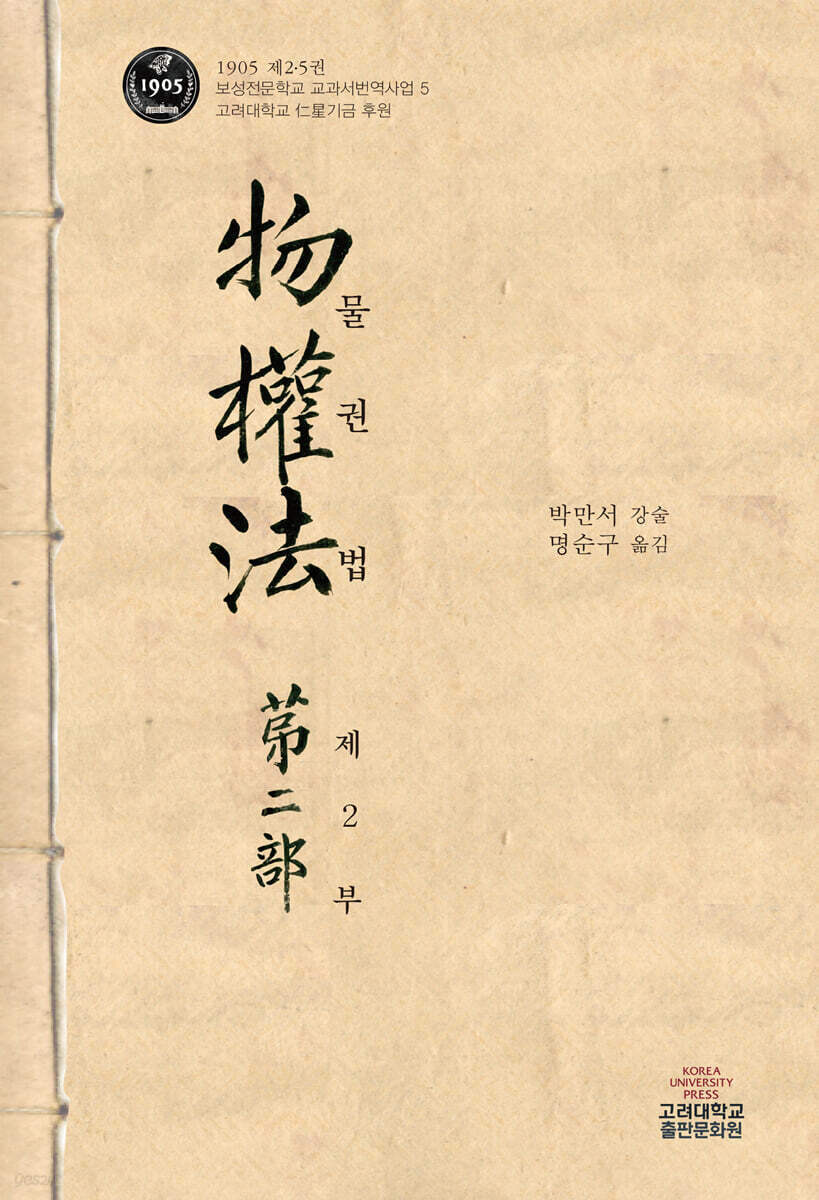 1905
1905 제2·5권
보성전문학교 교과서번역사업 5
고려대학교 仁星기금 후원
物權法
물권법
第二部
제2부
박만서 강술
명순구 옮김
KOREA
UNIVERSITY
PRESS
고려대학교
출판문화원
yes24